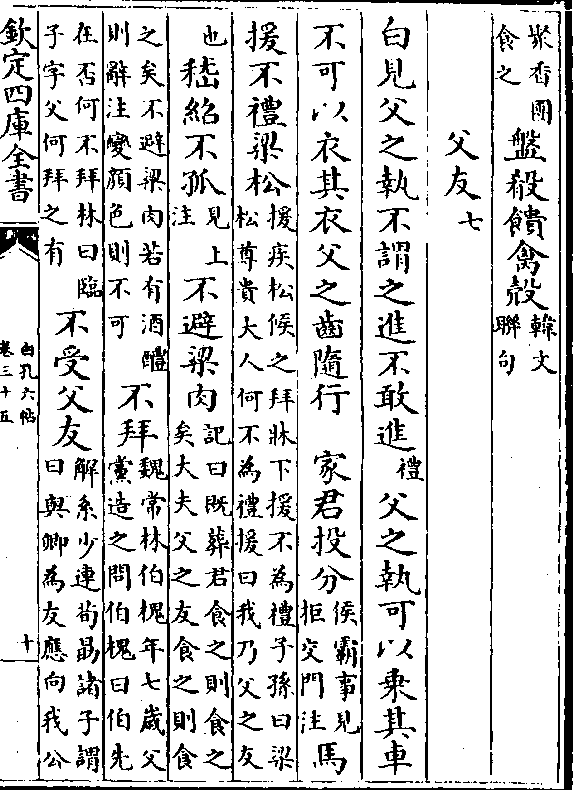 衆香國食之盤殽饋禽殼韓文聯句
父友七
白見父之執不謂之進不敢進禮父之執可以乗其車
不可以衣其衣父之齒隨行 家君投分侯霸事見拒交門注馬
援不禮梁松援疾松候之拜牀下援不為禮子孫曰梁松尊貴大人何不為禮援曰我乃父之友
也嵇紹不孤見上注不避梁肉記曰既葬君食之則食之矣大夫父之友食之則食
之矣不避梁肉若有酒醴則辭注變顔色則不可不拜魏常林伯槐年七歲父黨造之問伯槐曰伯先
在否何不拜林曰臨子字父何拜之有不受父友解系少連荀勗諸子謂曰與卿為友應向我公
欽定四庫全書
白孔六帖
卷三十五
十